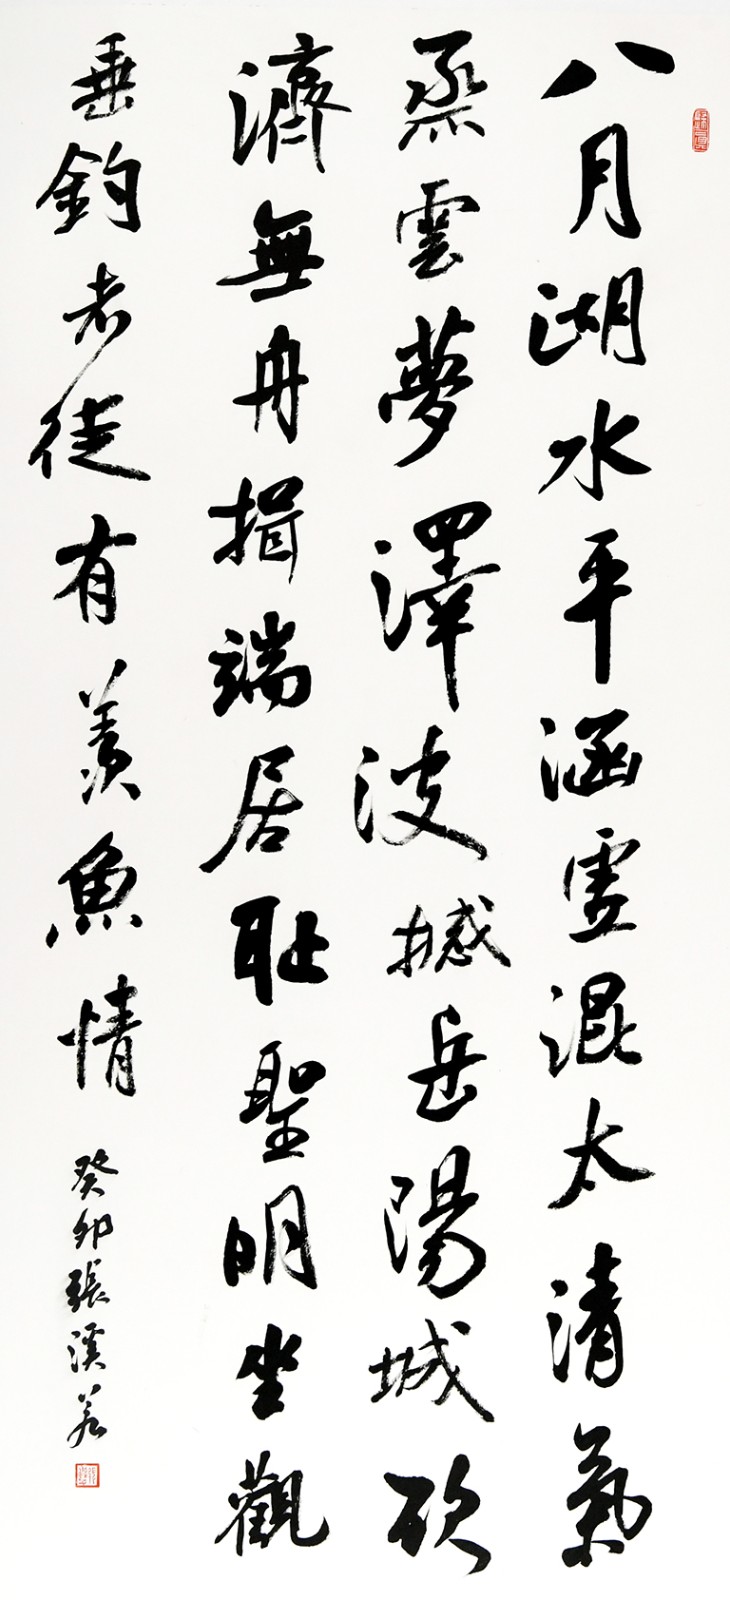 八月湖水平涵虛混太清氣
蒸雲夢澤波撼岳陽城欲
濟無舟楫端居耻聖明坐觀
垂釣者徒有羨魚情
癸卯張溪